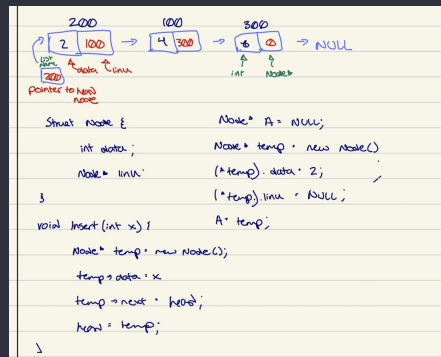 200 100 300
2 100 → 4 300 → 8 0 → NULL
list name data link int Node*
200
pointer to head node
Struct Node { Node* A = NULL;
int data; Node* temp = new Node()
Node* link; (*temp).data = 2;
} (*temp).link = NULL;
void Insert(int x) { A = temp;
Node* temp = new Node();
temp→data = x
temp→next = head;
head = temp;
}